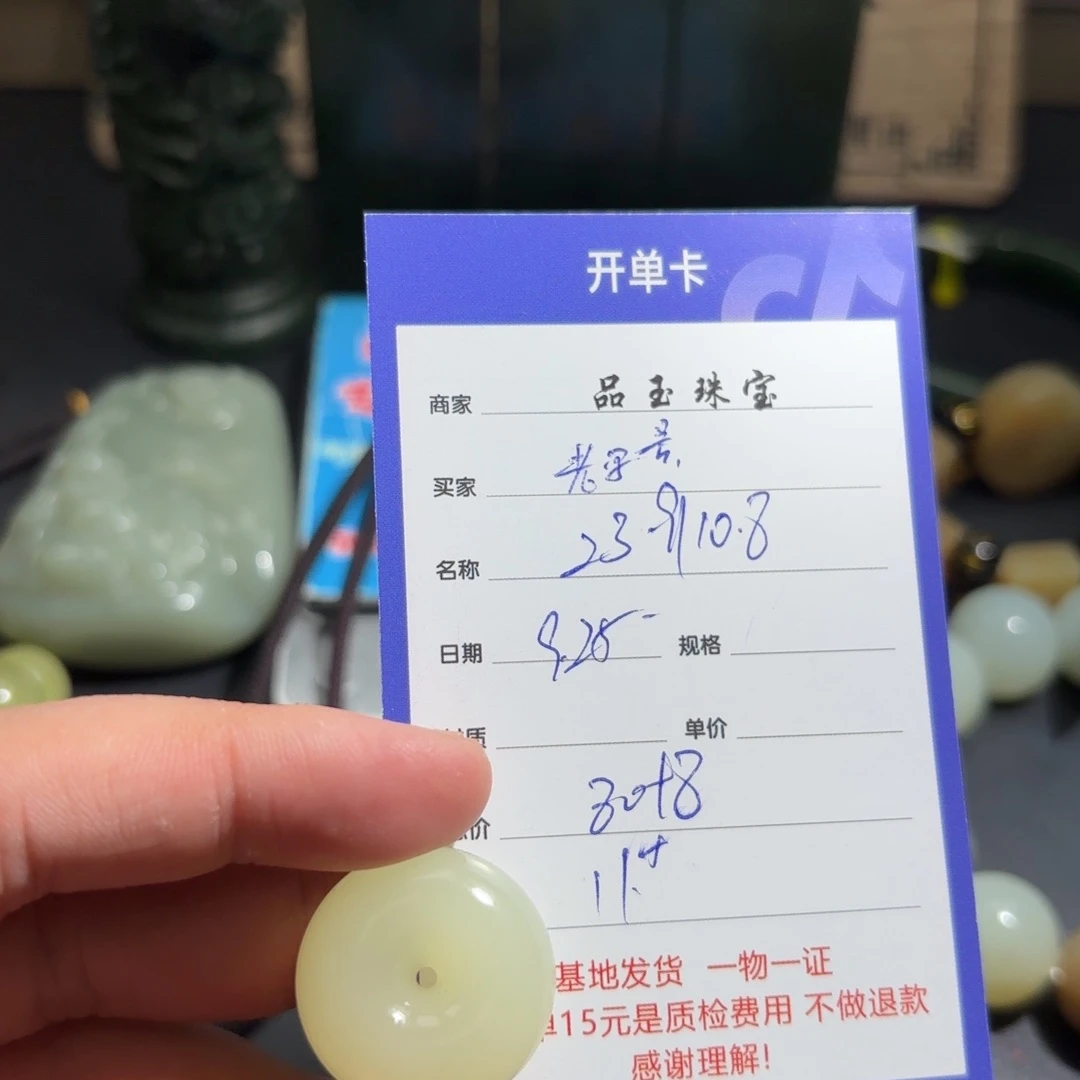 开单卡
商家 品玉珠宝
买家 老字号
名称 23.9/10.8
日期 9.25 规格
质 单价
总价 80+8
11+
基地发货 一物一证
单15元是质检费用 不做退款
感谢理解!